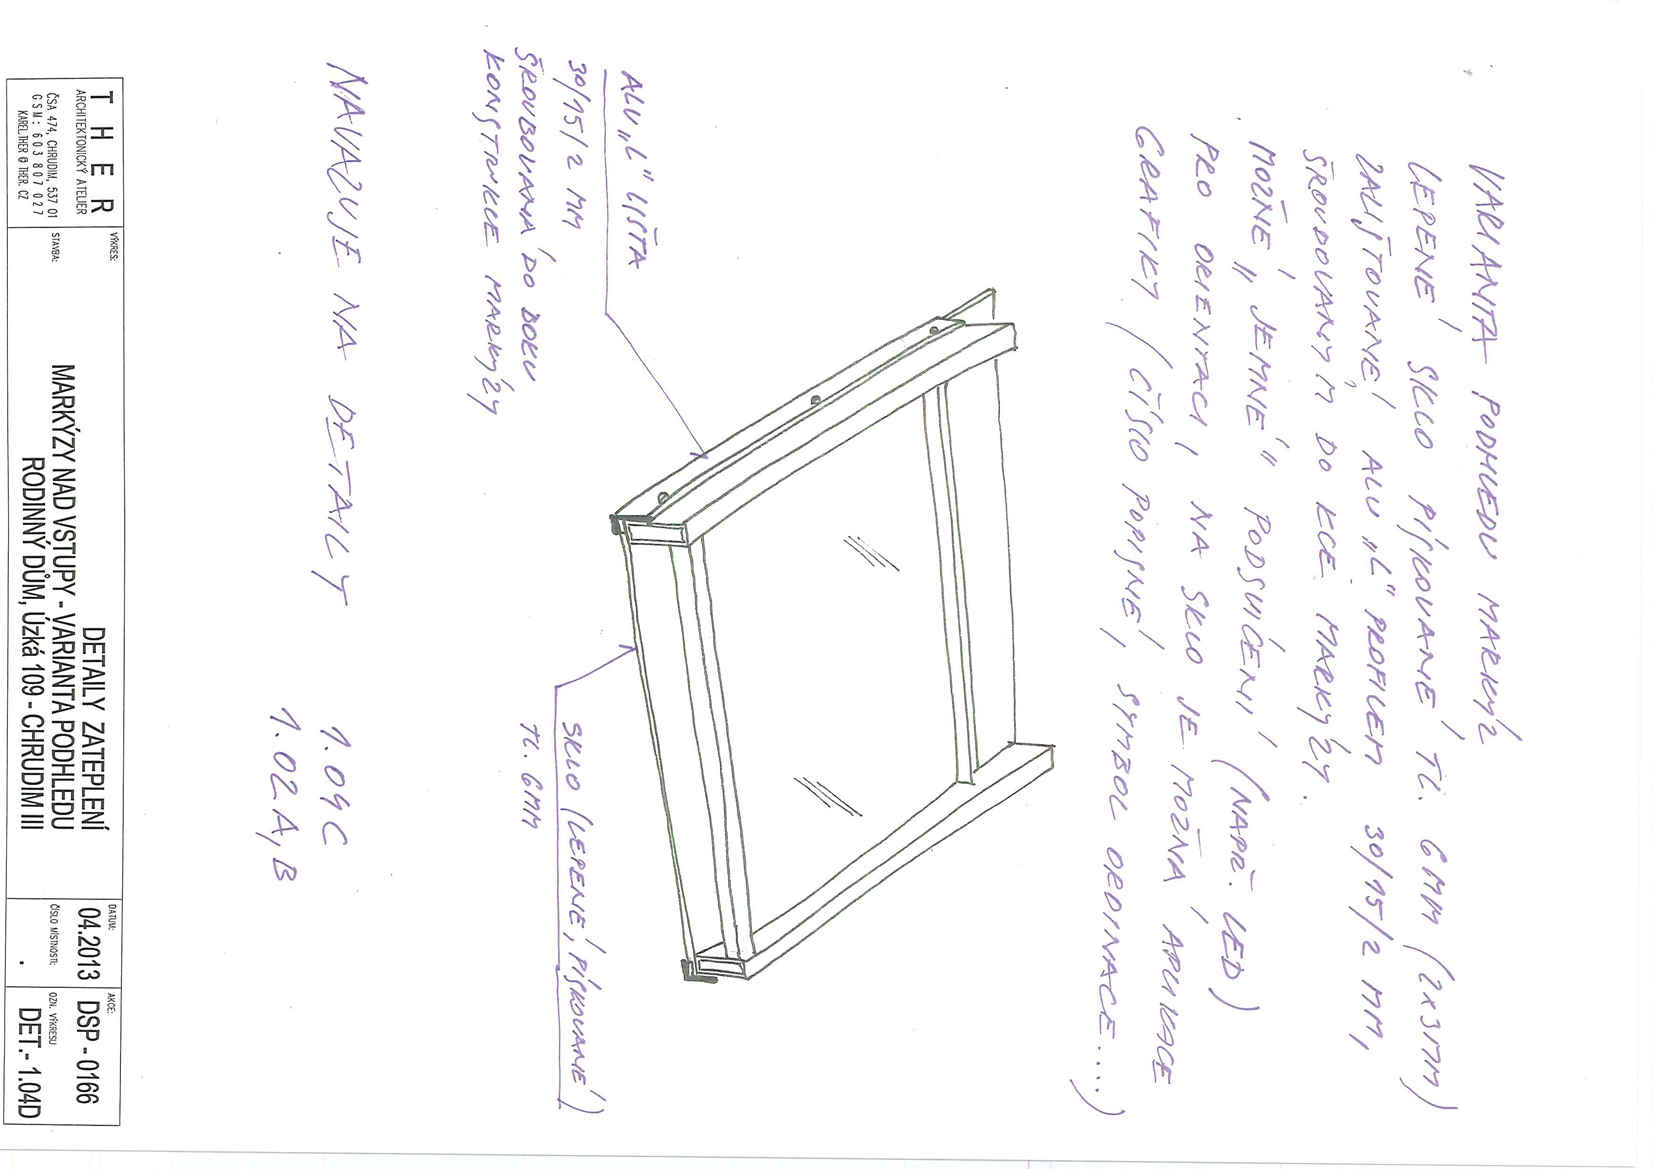 VARIANTA PODHLEDU MARKÝZ
LEPENÉ SKLO PÍSKOVANÉ TL. 6MM (2x3MM)
ZALIŠTOVANÉ ALU „L" PROFILEM 30/15/2 MM,
ŠROUBOVANÝM DO KCE MARKÝZY.
MOŽNÉ „JEMNÉ" PODSVÍCENÍ (NAPŘ. LED)
PRO ORIENTACI, NA SKLO JE MOŽNÁ APLIKACE
GRAFIKY (ČÍSLO POPISNÉ, SYMBOL ORDINACE....)
ALU „L" LIŠTA
30/15/2 MM
ŠROUBOVANÁ DO BOKU
KONSTRUKCE MARKÝZY
SKLO (LEPENÉ, PÍSKOVANÉ)
TL. 6MM
NAVAZUJE NA DETAILY 1.09C
1.02A,B
THER
ARCHITEKTONICKÝ ATELIER
ČSA 474, CHRUDIM, 537 01
GSM: 603 807 027
KAREL.THER@THER.CZ
VÝKRES:
DETAILY ZATEPLENÍ
STAVBA:
MARKÝZY NAD VSTUPY - VARIANTA PODHLEDU
RODINNÝ DŮM, Úzká 109 - CHRUDIM III
DATUM:
04.2013
ČÍSLO MÍSTNOSTI:
.
AKCE:
DSP - 0166
OZN. VÝKRESU:
DET.- 1.04D